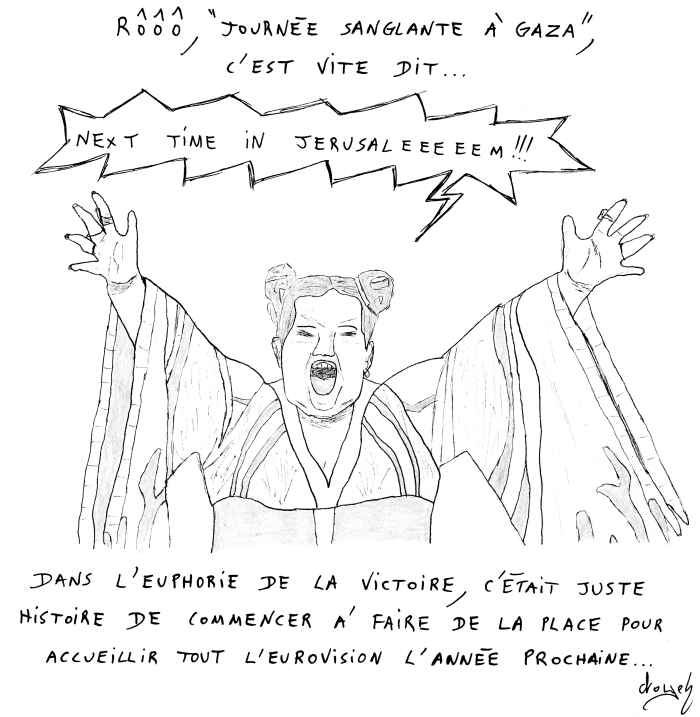 RÔÔÔ, "JOURNÉE SANGLANTE À GAZA",
C'EST VITE DIT...
NEXT TIME IN JERUSALEEEEEM!!!
DANS L'EUPHORIE DE LA VICTOIRE, C'ÉTAIT JUSTE
HISTOIRE DE COMMENCER À FAIRE DE LA PLACE POUR
ACCUEILLIR TOUT L'EUROVISION L'ANNÉE PROCHAINE...